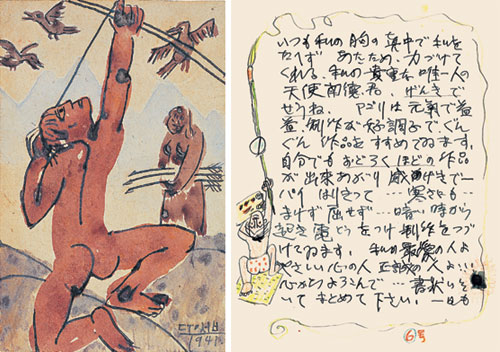 1941
いつも私の胸の真中で私を
たへず あたため、力づけて
くれる、私の真実な唯一人の
天使南徳君、げんきで
せうね、アゴリは元氣で益
益、制作が好調子でぐん
ぐん 作品をすすめてゐます。
自分でもおどろくほどの作品
が出来あがり 感げきで一
パイ はりきって…寒さにも…
まけず 屈せず…暗い時から
起き 電とうをつけ 制作をつづ
けてゐます。私の最愛の人よ
やさしい心の人 の人よ…
心からよろこんで…
いて まとめて下さい、一日も
6号